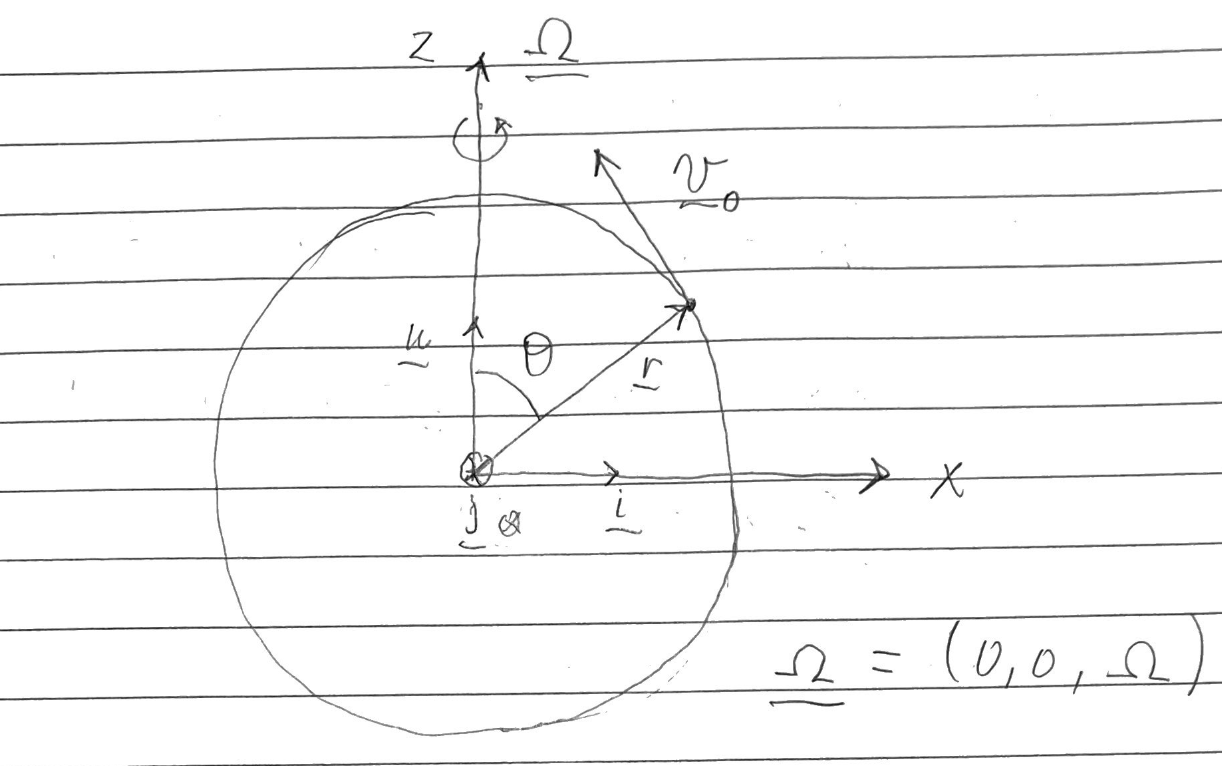 z Ω
v₀
k θ
r
x
j ⊗ i
Ω = (0, 0, Ω)